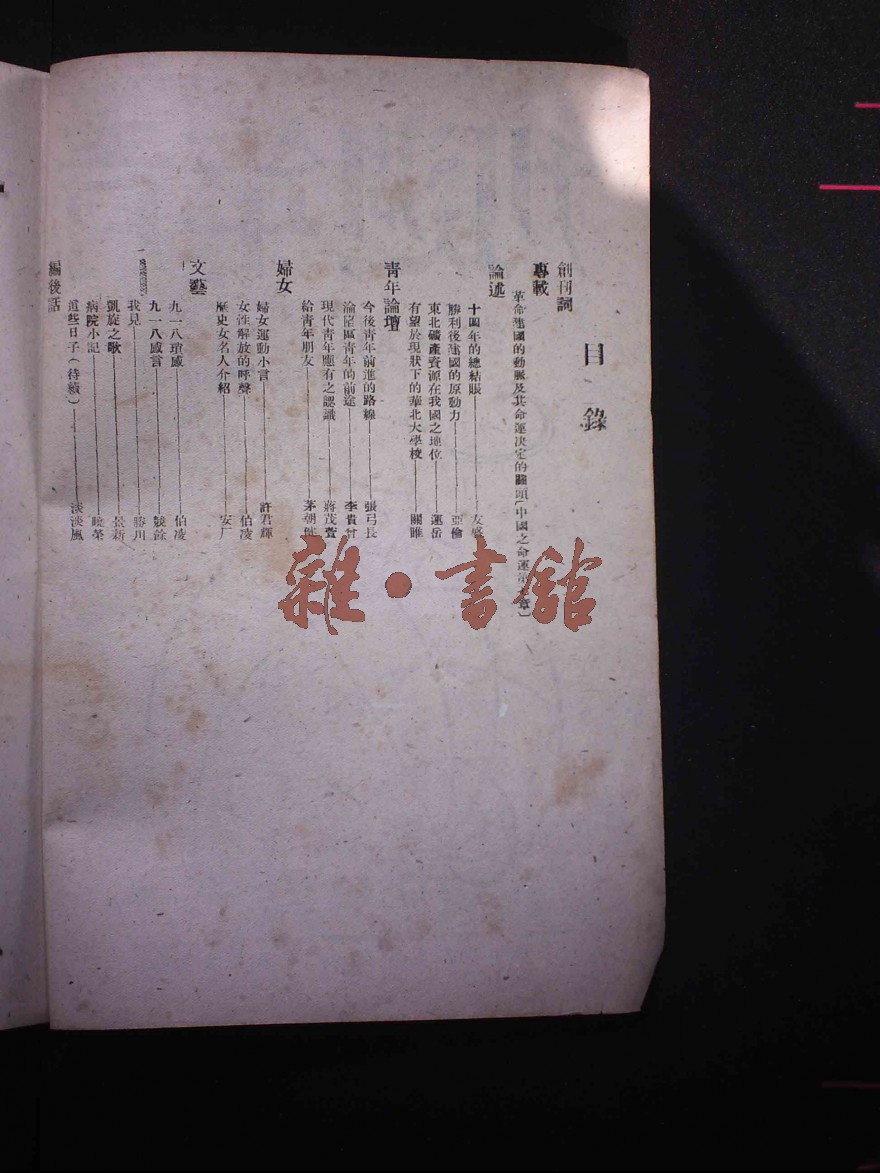 目錄
創刊詞
專載
革命建國的動脈及其命運決定的關頭(中國之命運第 章)
論述
十四年的總結賬 友盛
勝利後建國的原動力 亞倫
東北礦產資源在我國之地位 運岳
有望於現狀下的華北大學校 關睢
青年論壇
今後青年前進的路線 張弓長
淪陷區青年的前途 李貴
現代青年應有之認識 蔣茂萱
給青年朋友 茅朝
婦女
婦女運動小言 許君輝
女性解放的呼聲 伯凌
歷史女名人介紹 安厂
文藝
九一八瑣感 伯凌
九一八感言 競餘
我見 勝川
凱旋之歌 景新
病院小記 曉榮
這些日子(待續) 淡淡風
編後話
雜·書館